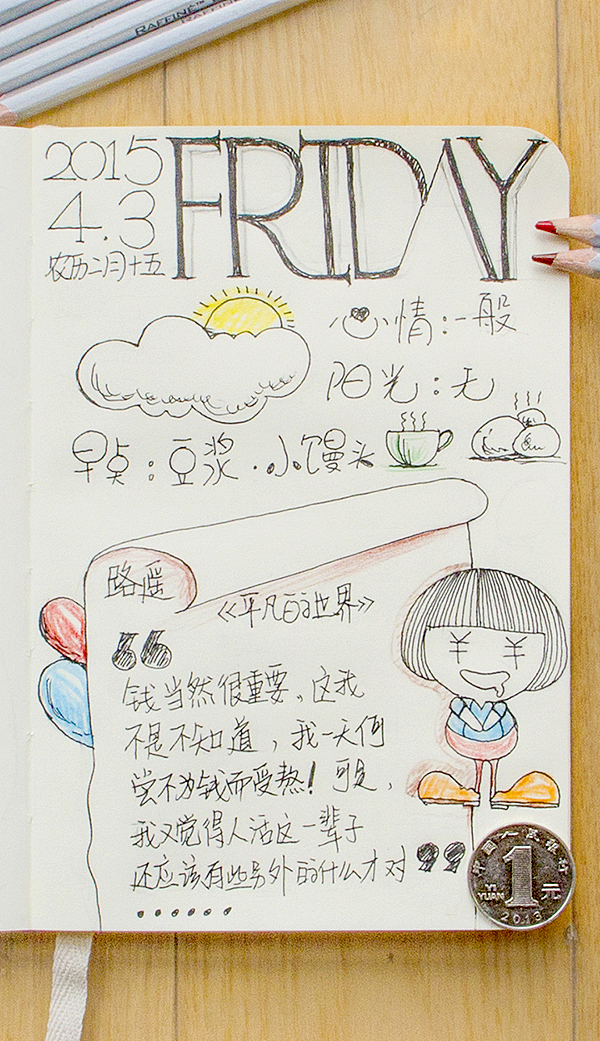 RAFFINÉ™
2015
4.3
农历二月十五
FRIDAY
心情:一般
阳光:无
早点:豆浆.小馒头
路遥
《平凡的世界》
“
钱当然很重要,这我
不是不知道,我一天何
尝不为钱而受熬!可是,
我又觉得人活这一辈子
还应该有些另外的什么才对”
......
中国人民银行
1
元
YI
YUAN
2013